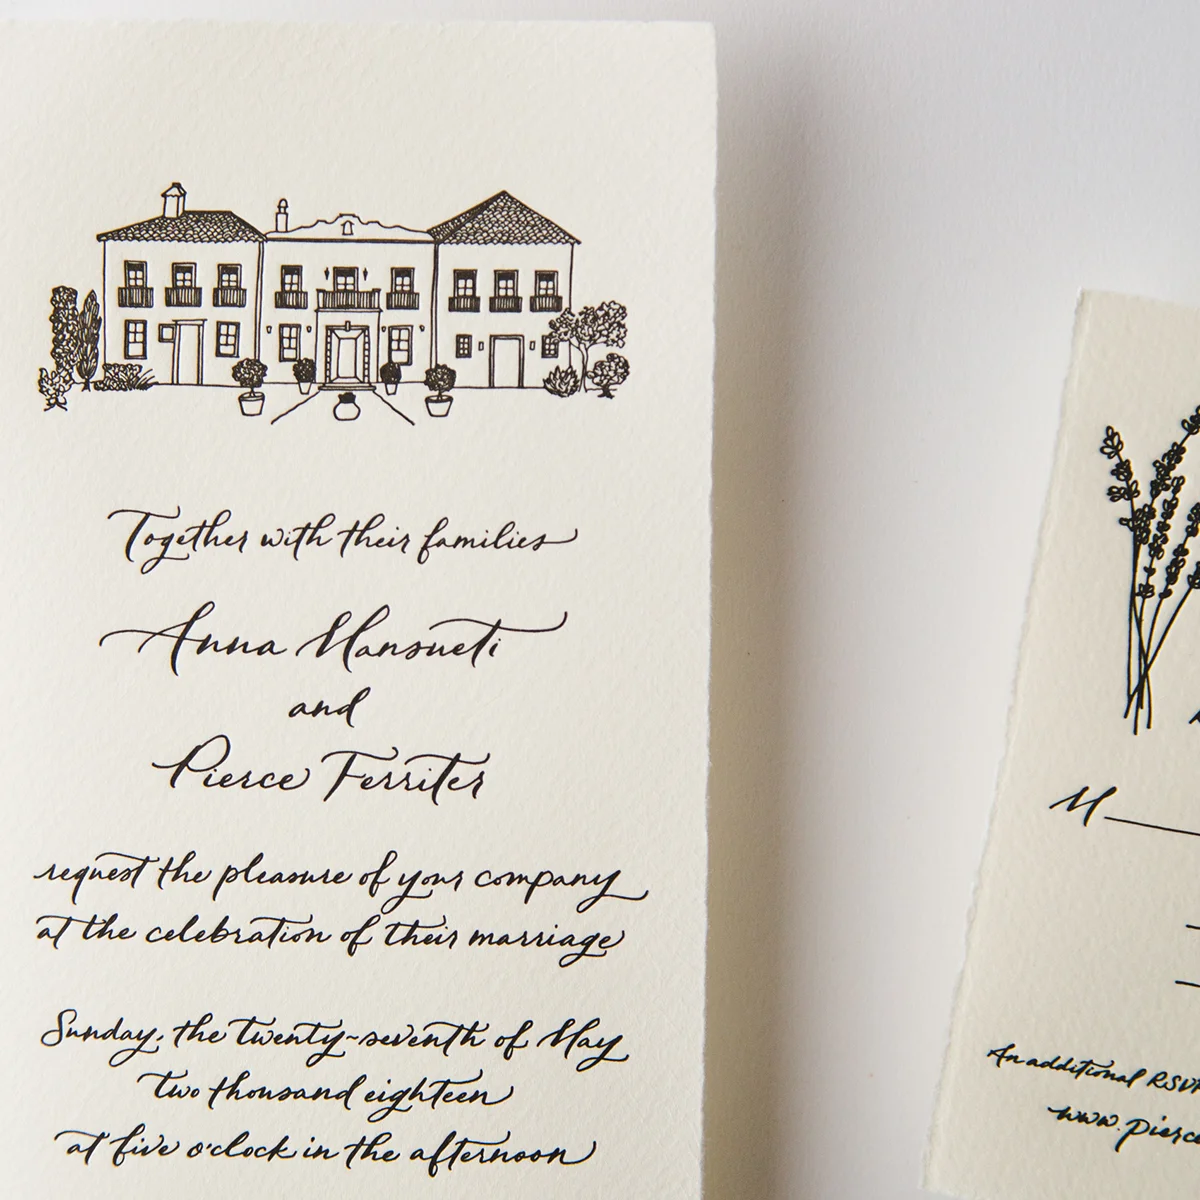 Together with their families
Anna Mansueti
and
Pierce Ferriter
request the pleasure of your company
at the celebration of their marriage
Sunday, the twenty-seventh of May
two thousand eighteen
at five o'clock in the afternoon
M
An additional RSVP
www.pierce